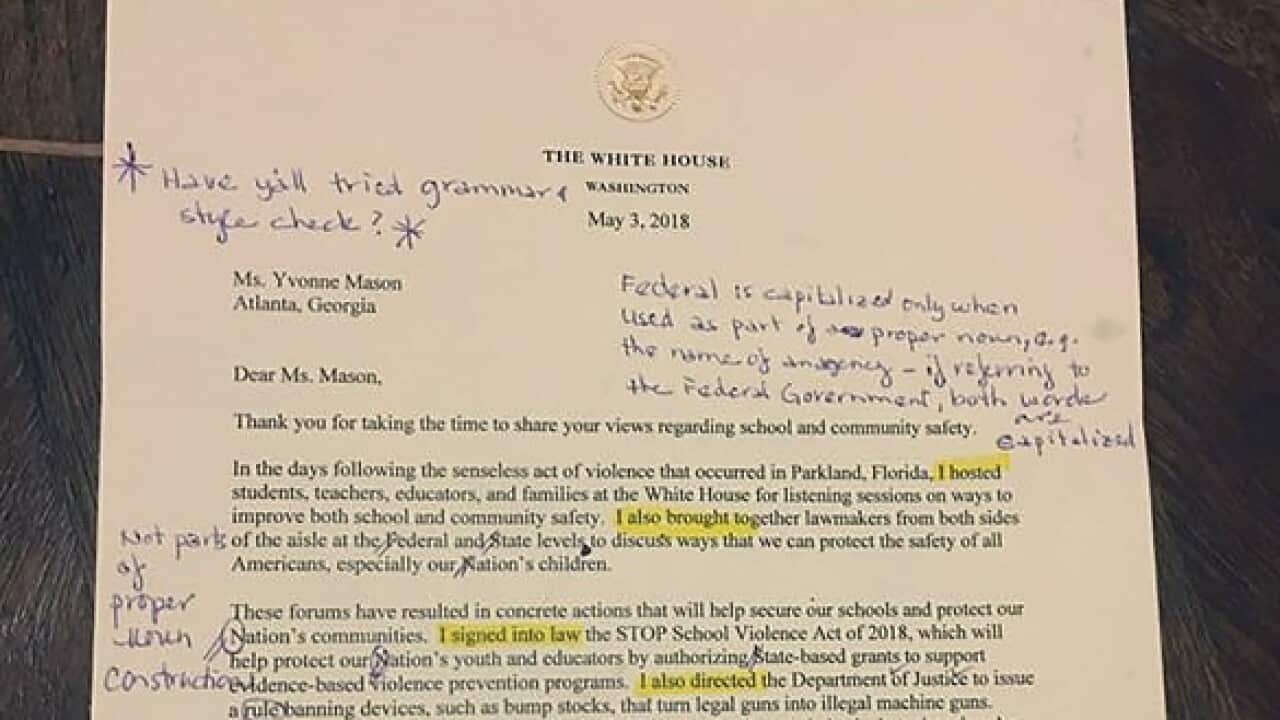 THE WHITE HOUSE
* Have y'all tried grammar &
WASHINGTON
style check? *
May 3, 2018
Ms. Yvonne Mason
Atlanta, Georgia
Federal is capitalized only when
used as part of proper noun, e.g.
the name of an agency – if referring to
the Federal Government, both words
are
capitalized
Dear Ms. Mason,
Thank you for taking the time to share your views regarding school and community safety.
In the days following the senseless act of violence that occurred in Parkland, Florida, I hosted
students, teachers, educators, and families at the White House for listening sessions on ways to
improve both school and community safety. I also brought together lawmakers from both sides
of the aisle at the Federal and State levels to discuss ways that we can protect the safety of all
Americans, especially our Nation's children.
Not parts
of
proper
noun
construction
These forums have resulted in concrete actions that will help secure our schools and protect our
Nation's communities. I signed into law the STOP School Violence Act of 2018, which will
help protect our Nation's youth and educators by authorizing State-based grants to support
evidence-based violence prevention programs. I also directed the Department of Justice to issue
a rule banning devices, such as bump stocks, that turn legal guns into illegal machine guns.